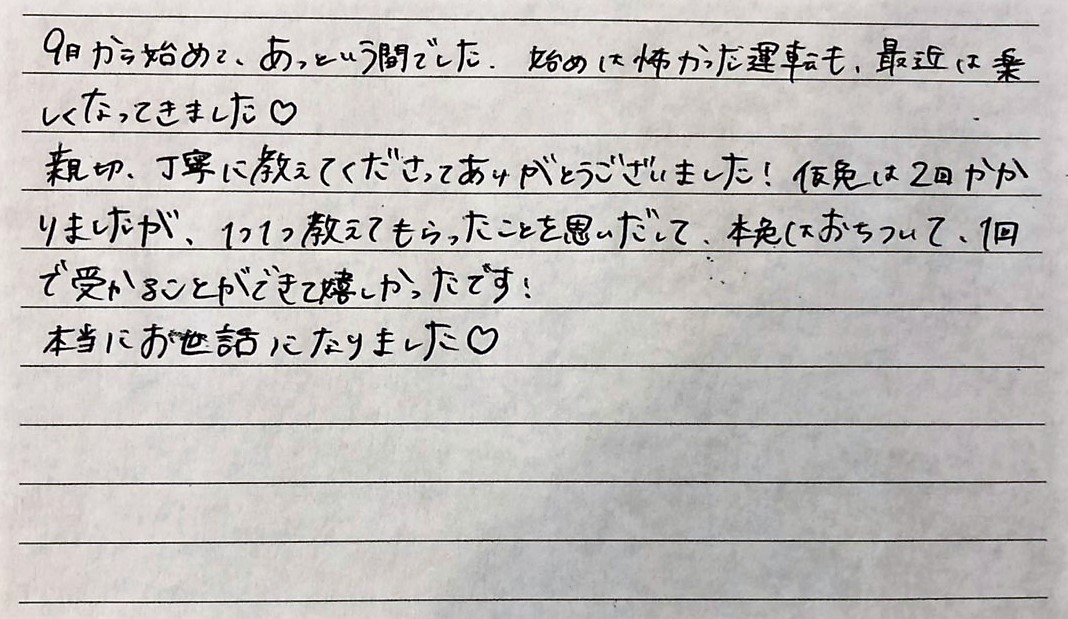 9月から始めて、あっという間でした. 始めは怖かった運転も、最近は楽
しくなってきました♡
親切、丁寧に教えてくださってありがとうございました! 仮免は2回かか
りましたが、1つ1つ教えてもらったことを思いだして、本免はおちついて、1回
で受かることができて嬉しかったです!
本当にお世話になりました♡